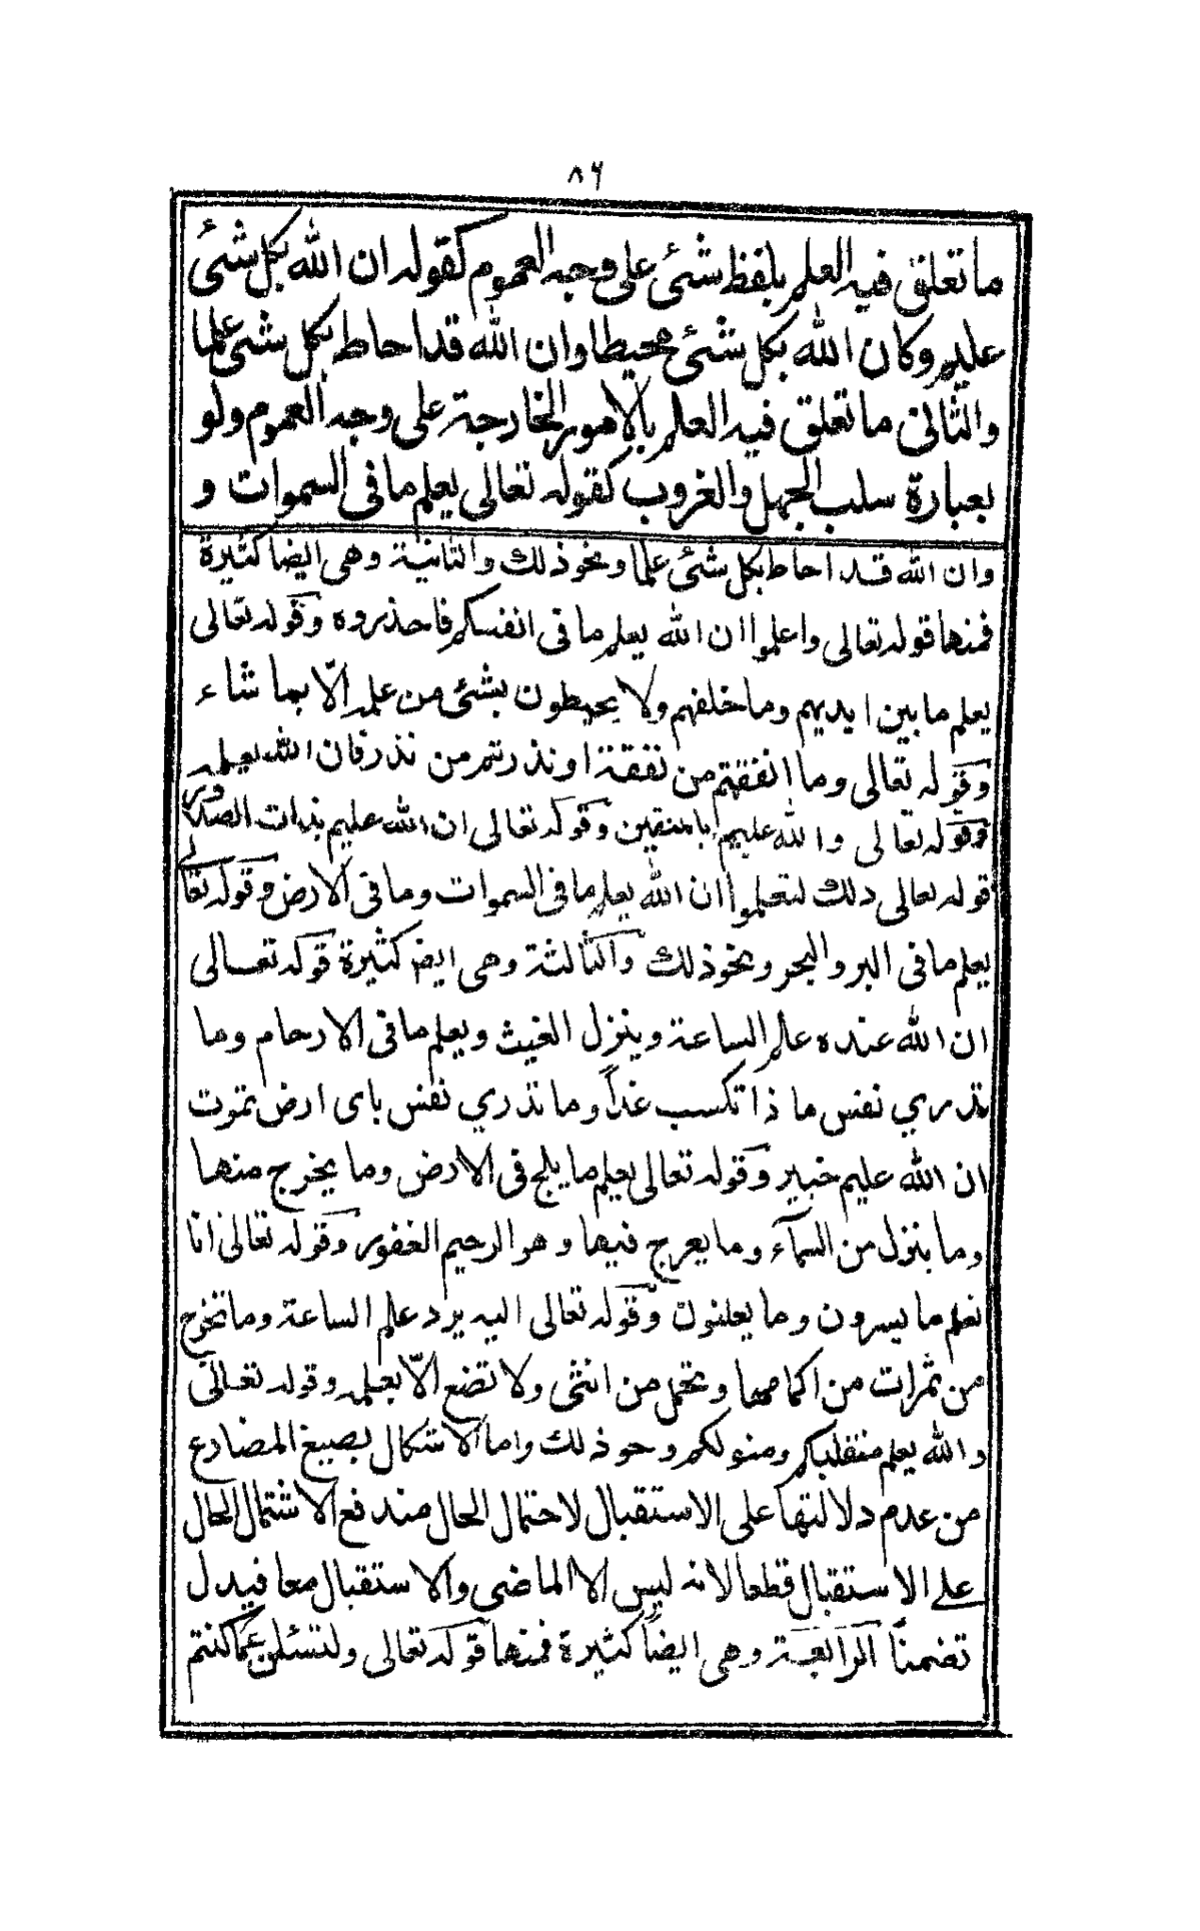 ٨٦
ما تعلق فيه العلم بلفظ شئ على وجه العموم كقوله ان الله بكل شئ
عليم وكان الله بكل شئ محيطا وان الله قد احاط بكل شئ علما
والثانى ما تعلق فيه العلم بالامور الخارجة على وجه العموم ولو
بعبارة سلب الجهل والغروب كقوله تعالى يعلم ما فى السموات و
وان الله قد احاط بكل شئ علما ونحو ذلك والثانية وهى ايضا كثيرة
فمنها قوله تعالى واعلموا ان الله يعلم ما فى انفسكم فاحذروه وقوله تعالى
يعلم ما بين ايديهم وما خلفهم ولا يحيطون بشئ من علمه الّا بما شاء
وقوله تعالى وما انفقتم من نفقة او نذرتم من نذر فان الله يعلمه
وقوله تعالى والله عليم بالمتقين وقوله تعالى ان الله عليم بذات الصدور
قوله تعالى ذلك لتعلموا ان الله يعلم ما فى السموات وما فى الارض وقوله تعالى
يعلم ما فى البر والبحر ونحو ذلك والثالثة وهى ايض كثيرة قوله تعالى
ان الله عنده علم الساعة وينزل الغيث ويعلم ما فى الارحام وما
تدري نفس ما ذا تكسب غداً وما تدري نفس باى ارض تموت
ان الله عليم خبير وقوله تعالى يعلم ما يلج فى الارض وما يخرج منها
وما ينزل من السمآء وما يعرج فيها وهو الرحيم الغفور وقوله تعالى انا
نعلم ما يسرون وما يعلنون وقوله تعالى اليه يرد علم الساعة وما تخرج
من ثمرات من اكمامها وتحمل من انثى ولا تضع الّا بعلمه وقوله تعالى
والله يعلم متقلبكم ومثويكم وحو ذلك واما الاشكال بصيغ المضارع
من عدم دلالتها على الاستقبال لاحتمال الحال مندفع الاشتمال الحال
على الاستقبال قطعا لانه ليس الا الماضى والاستقبال معا فيدل
تضمناً الرابعة وهى ايضاً كثيرة فمنها قوله تعالى ولتسئلن عما كنتم